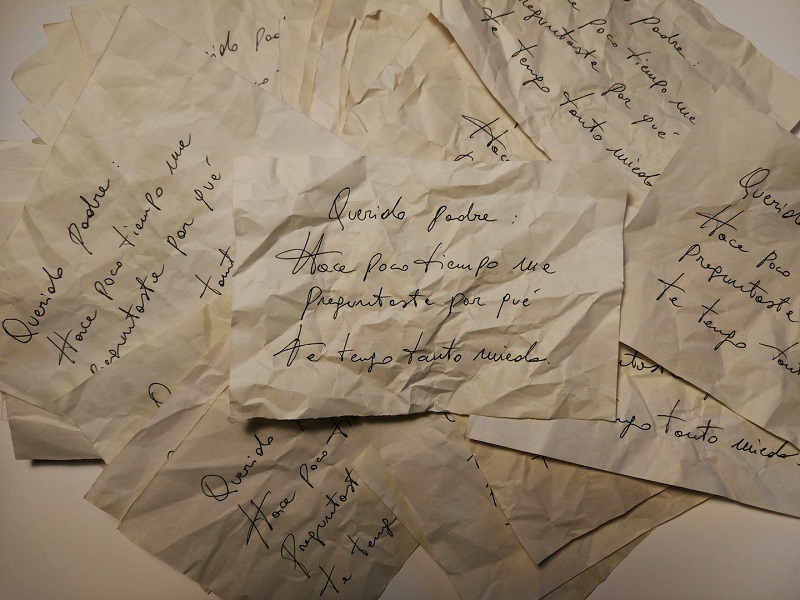 Querido padre:
Hace poco tiempo me
preguntaste por qué
te tengo tanto miedo.
Querido padre:
Hace poco tiempo me
preguntaste por qué
tant
Padre:
poco tiempo me
preguntaste por qué
te tengo tanto miedo
Hace
Querido
Hace poco
preguntaste
te tengo tant
tanto miedo.
Querido
Hace poco t
preguntast
te teng